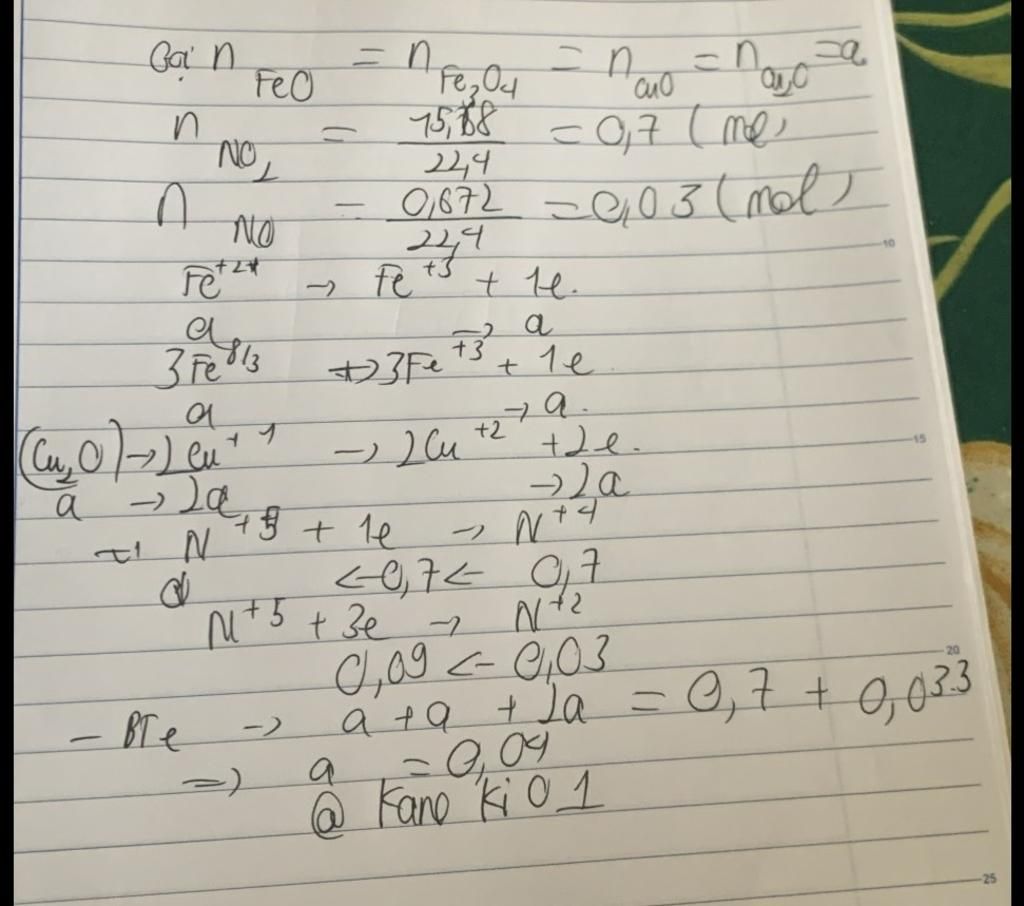 Gọi n FeO = n Fe3O4 = n CuO = n Cu2O = a
n NO2 = 15,68/22,4 = 0,7 (mol)
n NO = 0,672/22,4 = 0,03 (mol)
Fe+2 → Fe+3 + 1e.
a → a
3Fe8/3 → 3Fe+3 + 1e
a → a.
(Cu2O) → 2Cu+1 → 2Cu+2 + 2e.
a → 2a → 2a
N+5 + 1e → N+4
← 0,7 ← 0,7
N+5 + 3e → N+2
0,09 ← 0,03
- BTe → a + a + 2a = 0,7 + 0,03.3
=> a = 0,04
@ Kano Ki 0 1
10
15
20
25